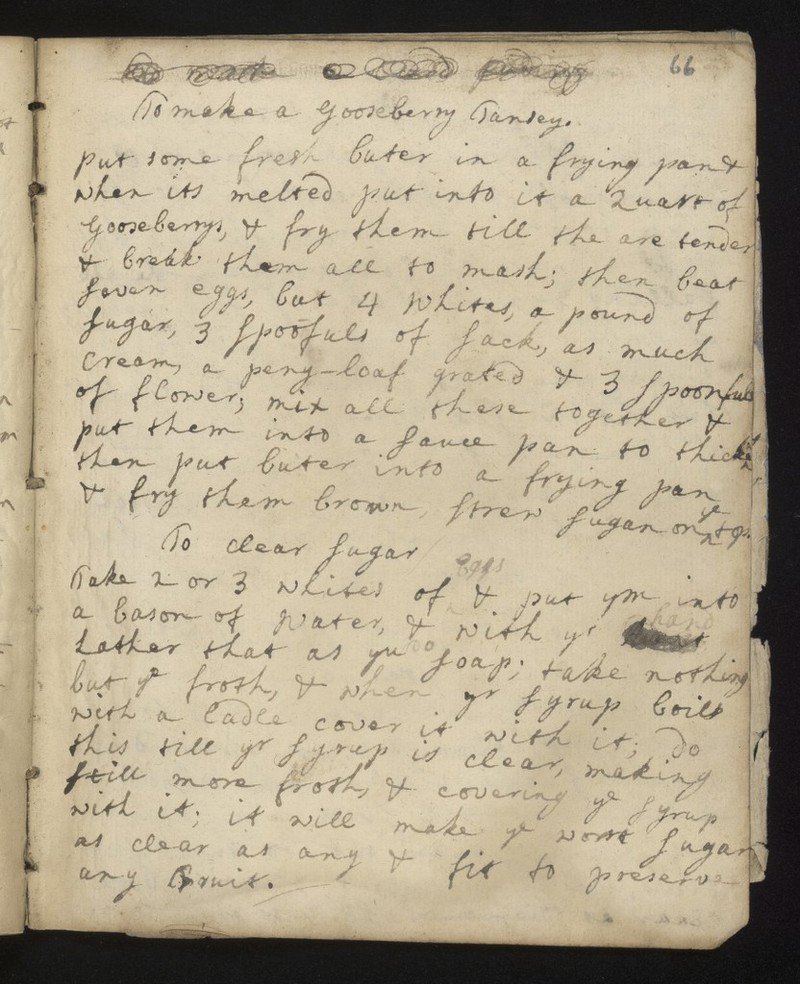 To make a bread puding
66
To make a Gooseberry Tansey.
put some fresh buter in a frying pan &
when its melted put into it a Quart of
Gooseberrys, & fry them till the are tender
& break them all to mash; then beat
seven eggs, but 4 whites, a pound of
sugar, 3 spoofuls of sack, as much
Cream, a peny-loaf grated & 3 spoonfuls
of flower; mix all these together &
put them into a sauce pan to thicken
then put buter into a frying pan
& fry them brown, strew sugar on ye top.
To clear sugar
Take 2 or 3 whites of Eggs & put ym into
a bason of water, & with yr hand
Lather that as yu do soap; take nothing
but ye froth, & when yr syrup boils
with a Ladle cover it with it; do
this till yr syrup is clear, making
still more froth, & covering ye syrup
with it; it will make ye worst sugar
as clear as any & fit to preserve
any fruit.